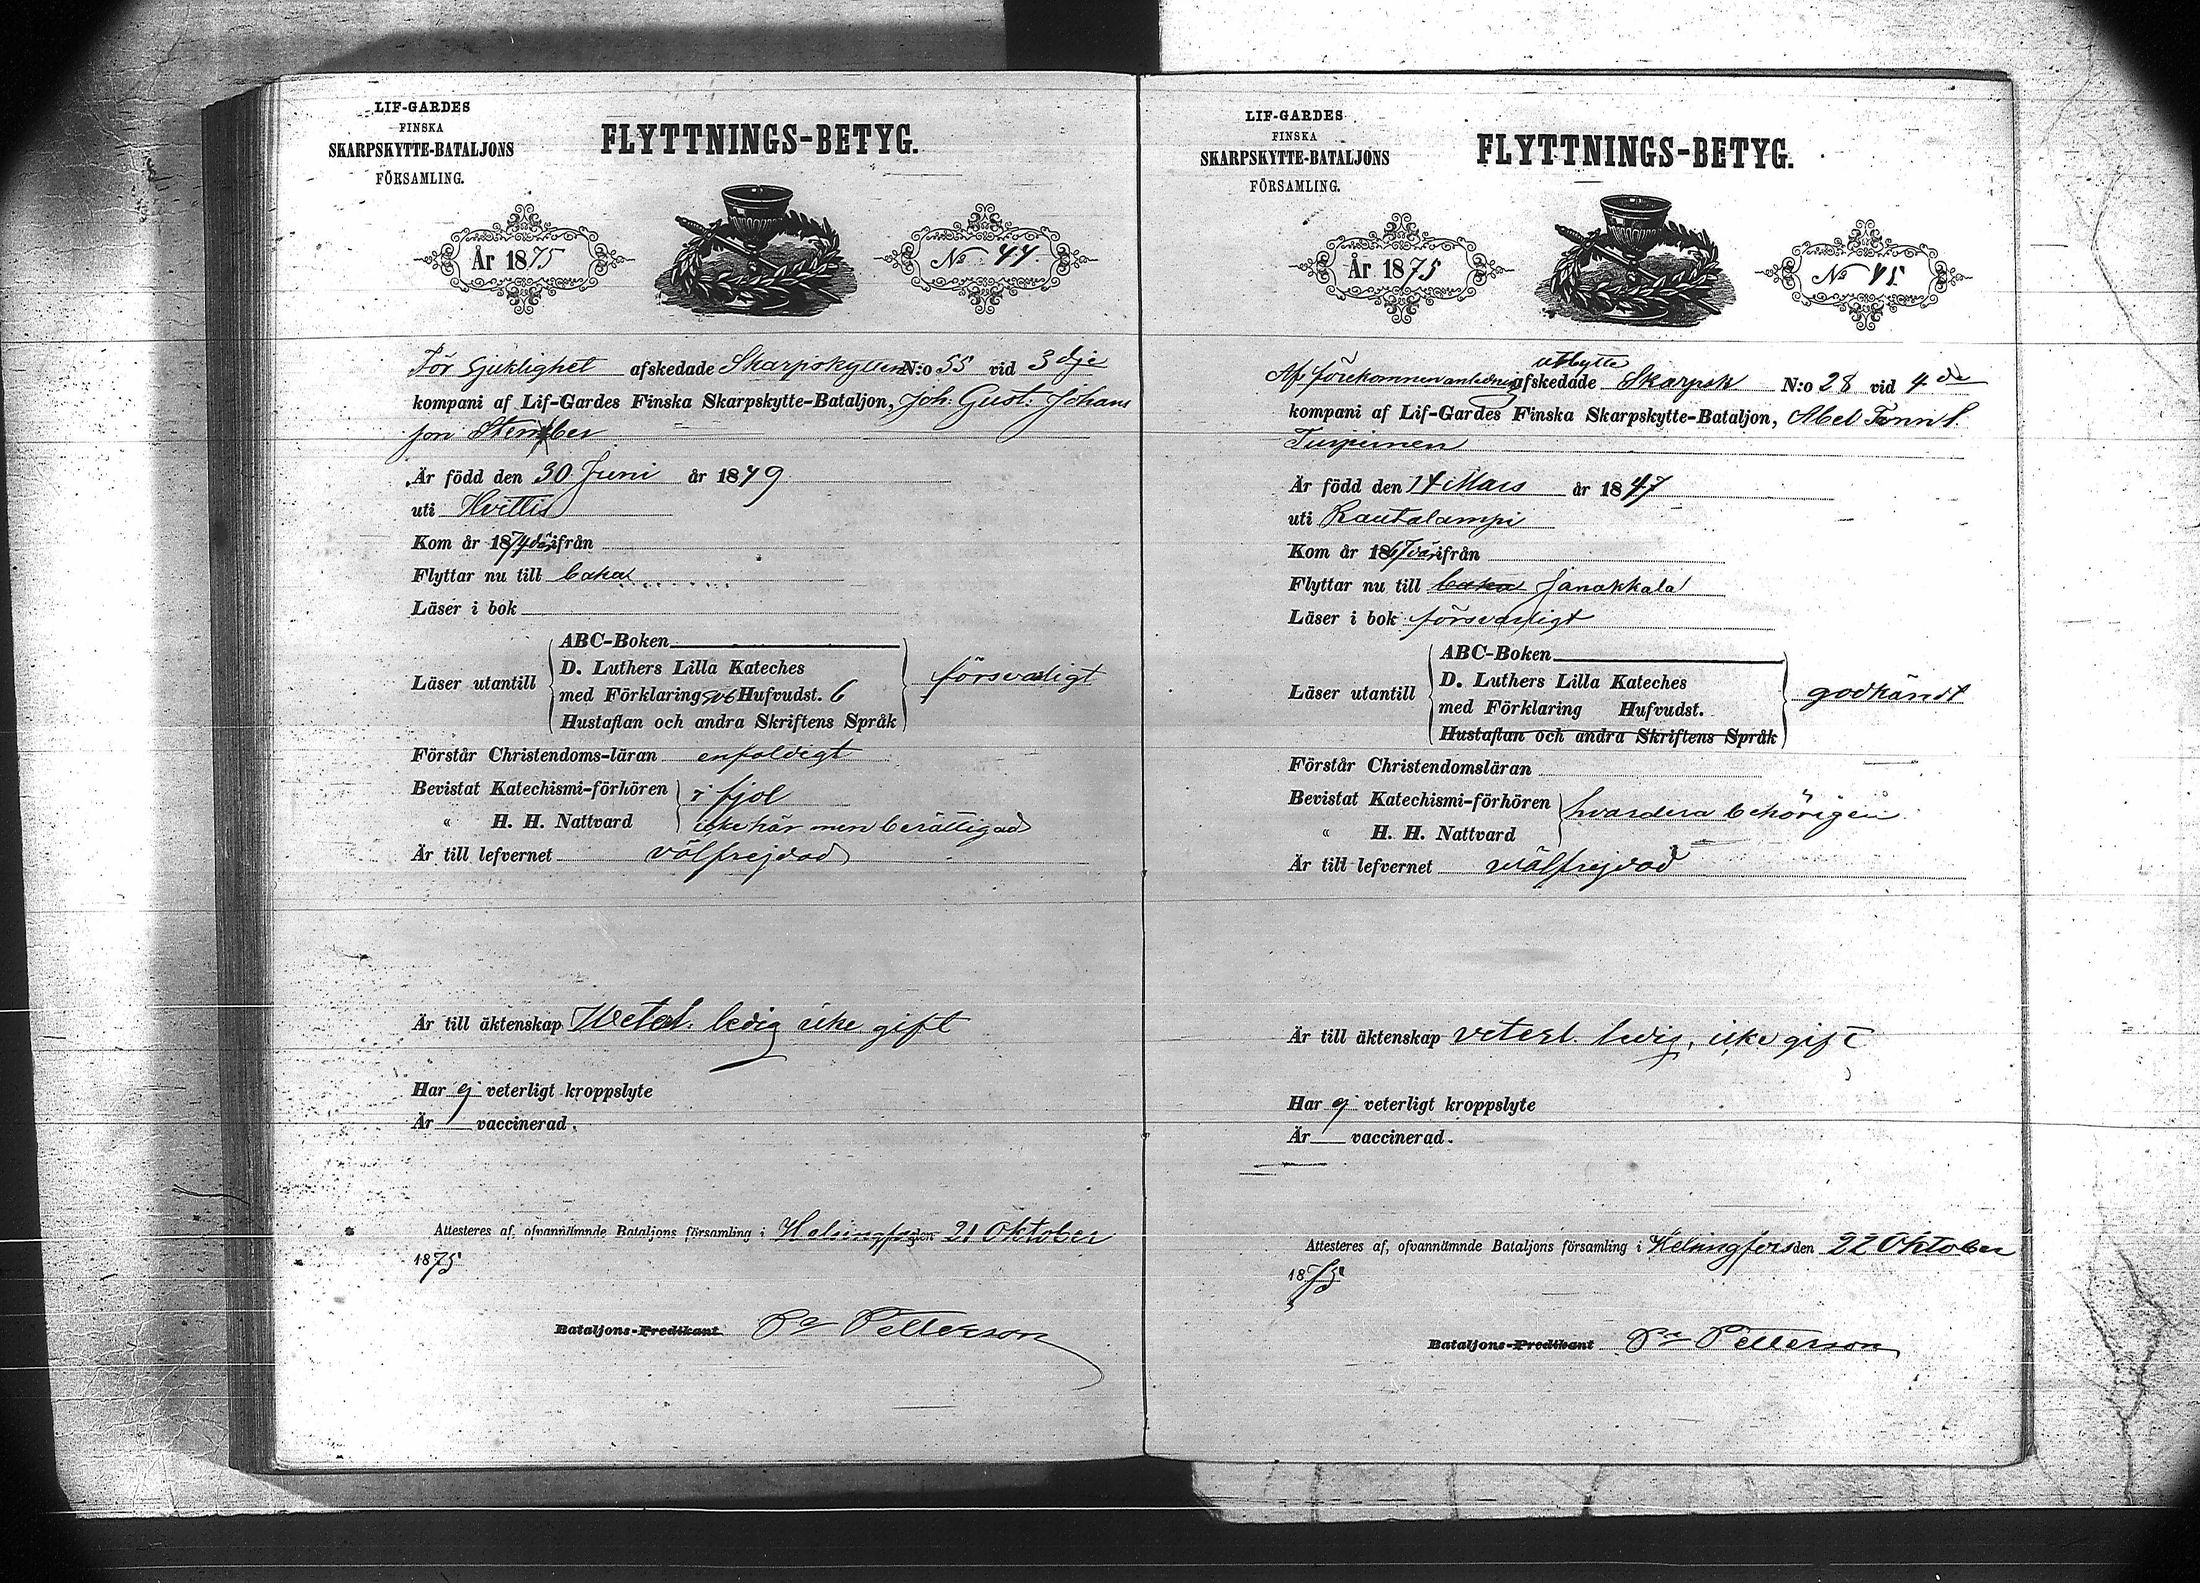 LIF-GARDES
FINSKA
SKARPSKYTTE-BATALJONS
FÖRSAMLING.
FLYTTNINGS-BETYG.
År 1875
No 44.
För Sjuklighet afskedade Skarpskytten N:o 55 vid 3dje
kompani af Lif-Gardes Finska Skarpskytte-Bataljon, Joh. Gust. Johans
son
Är född den 30 Juni år 1849
uti Hvittis
Kom år 1874 därifrån
Flyttar nu till
Läser i bok
ABC-Boken
D. Luthers Lilla Kateches
Läser utantill
med Förklaring Hufvudst. 6
försvarligt
Hustaflan och andra Skriftens Språk
Förstår Christendoms-läran enfaldigt
Bevistat Katechismi-förhören i fjol
« H. H. Nattvard icke här men berättigad
Är till lefvernet välfrejdad
Är till äktenskap Veterl. ledig icke gift
Har ej veterligt kroppslyte
Är vaccinerad.
Attesteres af, ofvannämnde Bataljons församling i Helsingfors den 21 Oktober
1875
Bataljons-Predikant Petterson
LIF-GARDES
FINSKA
SKARPSKYTTE-BATALJONS
FÖRSAMLING.
FLYTTNINGS-BETYG.
År 1875
No 45
utbytte
Af förekommen anledning afskedade Skarpsk N:o 28 vid 4de
kompani af Lif-Gardes Finska Skarpskytte-Bataljon, Abel
Turpeinen
Är född den 14 Mars år 1847
uti Rautalampi
Kom år 1867 därifrån
Flyttar nu till Janakkala
Läser i bok försvarligt
ABC-Boken
D. Luthers Lilla Kateches
Läser utantill
med Förklaring Hufvudst.
godkändt
Hustaflan och andra Skriftens Språk
Förstår Christendomsläran
Bevistat Katechismi-förhören
hvardera behörigen
« H. H. Nattvard
Är till lefvernet välfrejdad
Är till äktenskap veterl. ledig, icke gift
Har ej veterligt kroppslyte
Är vaccinerad.
Attesteres af, ofvannämnde Bataljons församling i Helsingfors den 22 Oktober
1875
Bataljons-Predikant Petterson